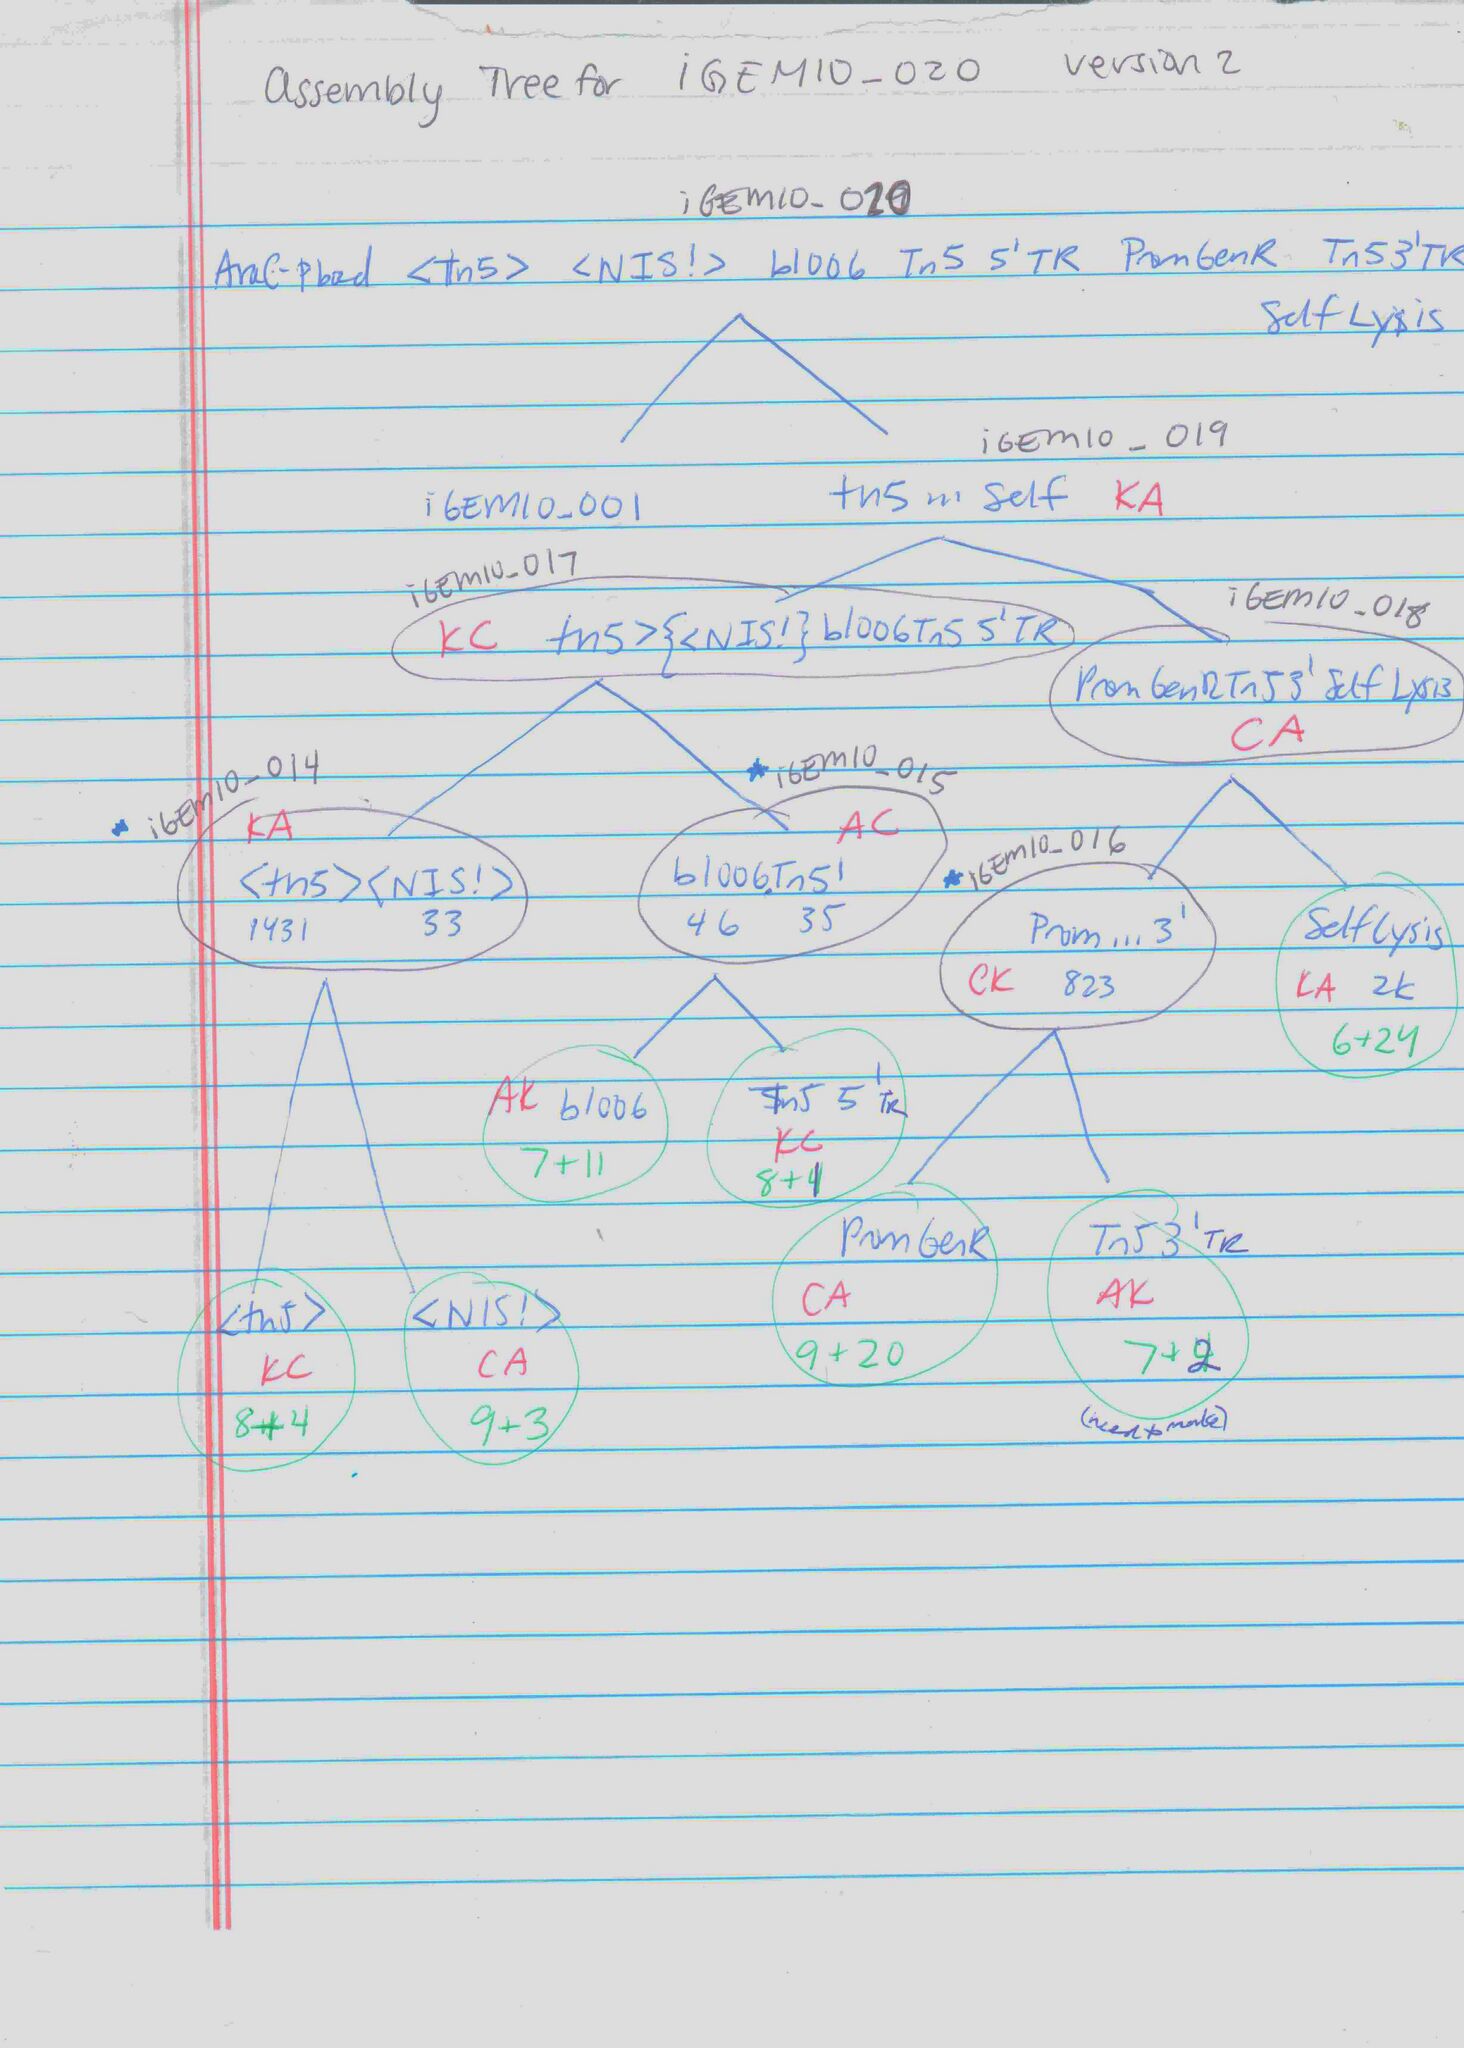 Assembly Tree for iGEM10_020 version 2
iGEM10_020
AraC-pbad <tn5> <NIS!> b1006 Tn5 5'TR PromGenR Tn5 3'TR
Self Lysis
iGEM10_019
iGEM10_001 tn5 ... Self KA
iGEM10_017
iGEM10_018
KC tn5>{<NIS!} b1006Tn5 5'TR
PromGenR Tn5 3' Self Lysis
CA
* iGEM10_014
* iGEM10_015
KA
AC
* iGEM10_016
<tn5><NIS!>
1431 33
b1006.Tn5'
46 35
Prom ... 3'
CK 823
Self Lysis
KA 2K
6+24
AK b1006
7+11
Tn5 5' TR
KC
8+1
PromGenR
CA
9+20
Tn5 3' TR
AK
7+2
(need to make)
<tn5>
KC
8+4
<NIS!>
CA
9+3